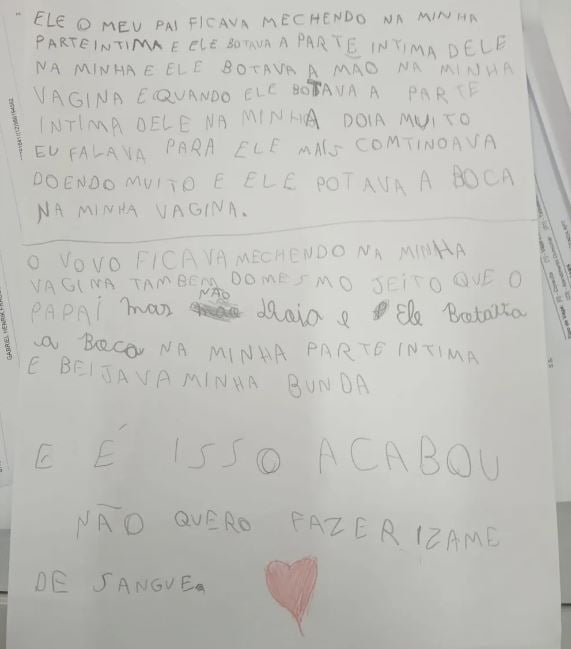 ELE O MEU PAI FICAVA MECHENDO NA MINHA
PARTEINTIMA E ELE BOTAVA A PARTE INTIMA DELE
NA MINHA E ELE BOTAVA A MAO NA MINHA
VAGINA E QUANDO ELE BOTAVA A PARTE
INTIMA DELE NA MINHA DOIA MUITO
EU FALAVA PARA ELE MAIS COMTINOAVA
DOENDO MUITO E ELE POTAVA A BOCA
NA MINHA VAGINA.
O VOVO FICAVA MECHENDO NA MINHA
VAGINA TAMBEM DOMESMO JEITO QUE O
PAPAI mas NÃO doia e Ele Botava
a Boca NA MINHA PARTE INTIMA
E BEIJAVA MINHA BUNDA
E É ISSO ACABOU
NÃO QUERO FAZER IZAME
DE SANGUE.